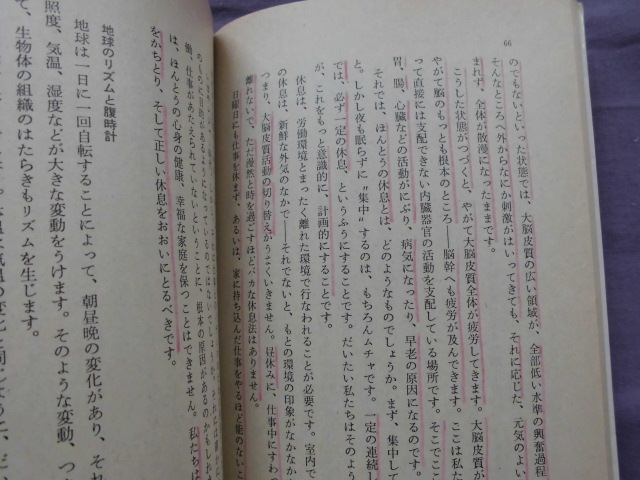 66
のでもないといった状態では、大脳皮質の広い領域が、全部低い水準の興奮過程
そんなところへ外からなにか刺激がはいってきても、それに応じた、元気のよい
まれず、全体が散漫になったままです。
こうした状態がつづくと、やがて大脳皮質全体が疲労してきます。大脳皮質が
やがて脳のもっとも根本のところ――脳幹へも疲労が及んできます。ここは私た
って直接には支配できない内臓器官の活動を支配している場所です。そこでここ
胃、腸、心臓などの活動がにぶり、病気になったり、早老の原因になるのです。
それでは、ほんとうの休息とは、どのようなものでしょうか。まず、集中して
と。しかし夜も眠らずに〝集中〟するのは、もちろんムチャです。一定の連続し
では、必ず一定の休息、というふうにすることです。だいたい私たちはそのよう
が、これをもっと意識的に、計画的にすることです。
休息は、労働環境とまったく離れた環境で行なわれることが必要です。室内で
の休息は、新鮮な外気のなかで――それでないと、もとの環境の印象がなかなか
つまり、大脳皮質活動の切り替えがうまくいきません。昼休みに、仕事中にすわっ
離れないで、ただ漫然と時を過ごすほどバカな休息法はありません。
日曜日にも仕事を休まず、あるいは、家に持ち込んだ仕事をやるほか能のないこ
働、仕事があたえられていないということに、根本の原因があるのかもしれ
は、ほんとうの心身の健康、幸福な家庭を保つことはできません。私たちは
をかちとり、そして正しい休息をおおいにとるべきです。
地球のリズムと腹時計
地球は一日に一回自転することによって、朝昼晩の変化があり、それ
照度、気温、湿度などが大きな変動をうけます。そのような変動、つ
て、生物体の組織のはたらきもリズムを生じます。